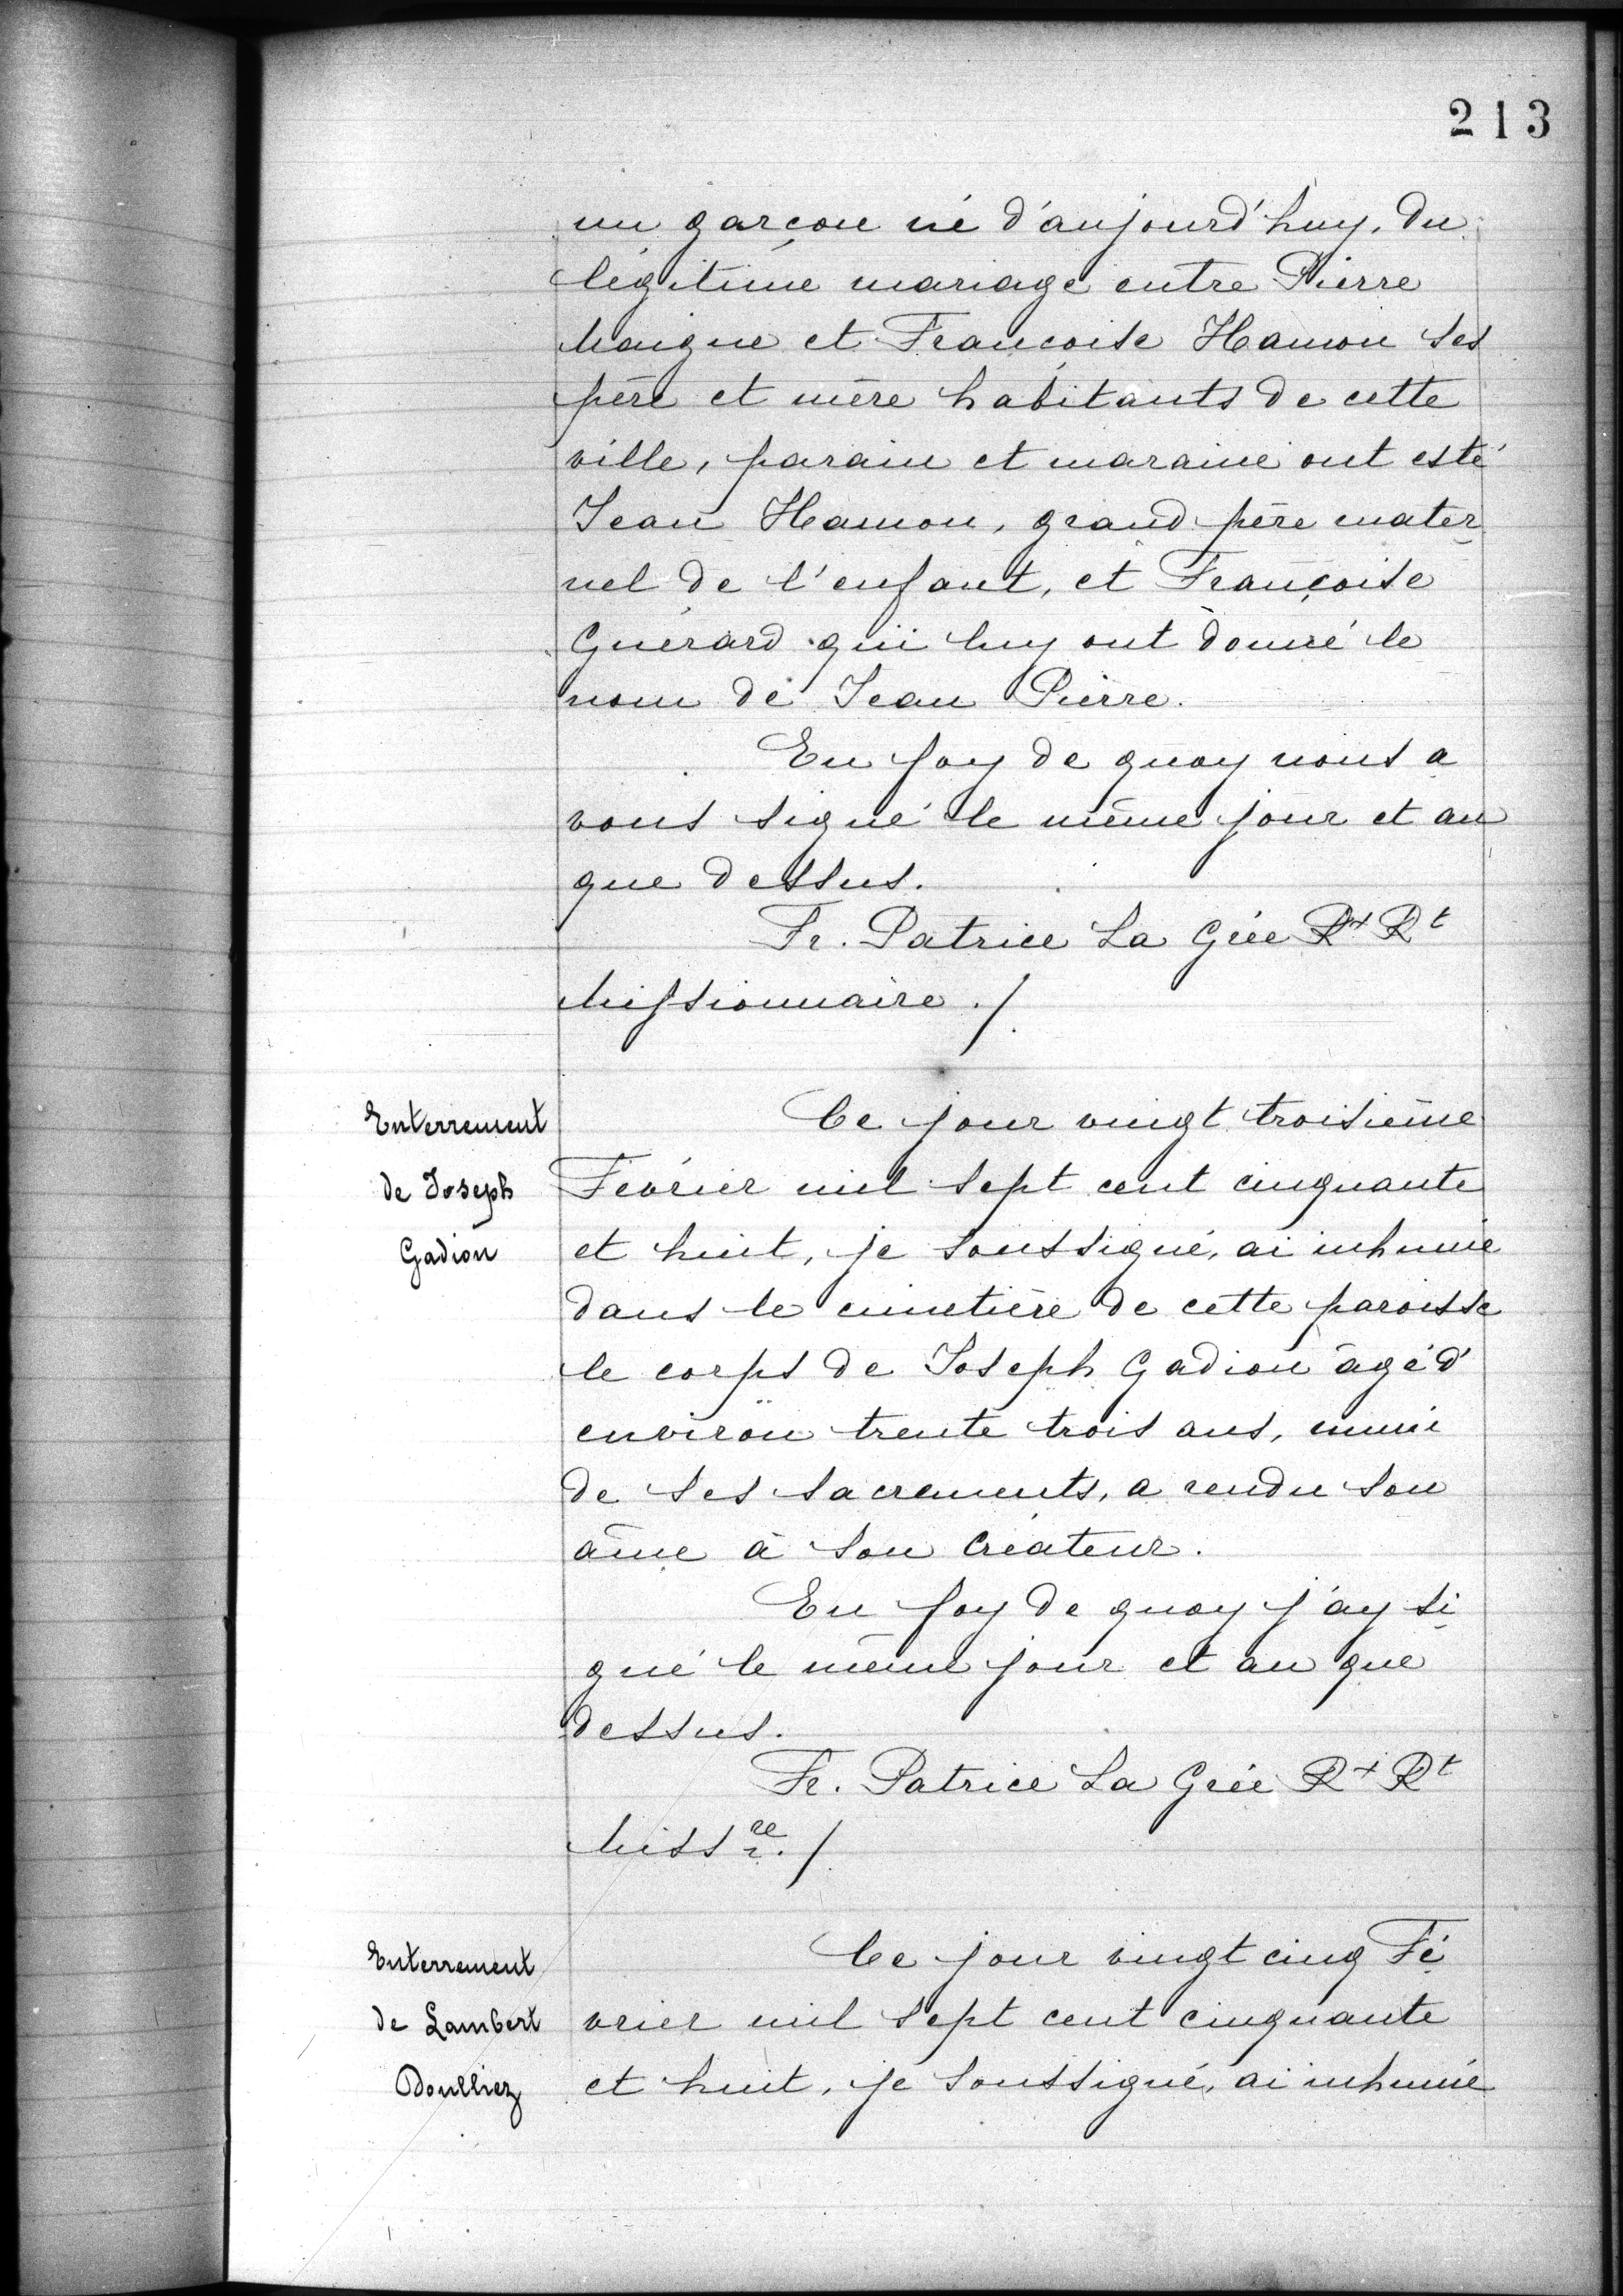 213
un garçon né d'aujourd'huy, du
légitime mariage entre Pierre
Maigne et Françoise Hamon ses
père et mère habitants de cette
ville, parain et maraine ont esté
Jean Hamon, grand père mater
nel de l'enfant, et Françoise
Guérard qui luy ont donné le
nom de Jean Pierre.
En foy de quoy nous a
vons signé le même jour et an
que dessus.
Fr. Patrice La Grée Rx Rt
Missionnaire ./.
Enterrement
de Joseph
Gadion
Ce jour vingt troisième
Février mil sept cent cinquante
et huit, je soussigné, ai inhumé
dans le cimetière de cette paroisse
le corps de Joseph Gadion âgé d'
environ trente trois ans, muni
de ses sacrements, a rendu son
âme à son Créateur.
En foy de quoy j'ay si
gné le même jour et an que
dessus.
Fr. Patrice La Grée R+ Rt
Missre ./.
Enterrement
de Lambert
Doulliez
Ce jour vingt cinq Fé
vrier mil sept cent cinquante
et huit, je soussigné, ai inhumé